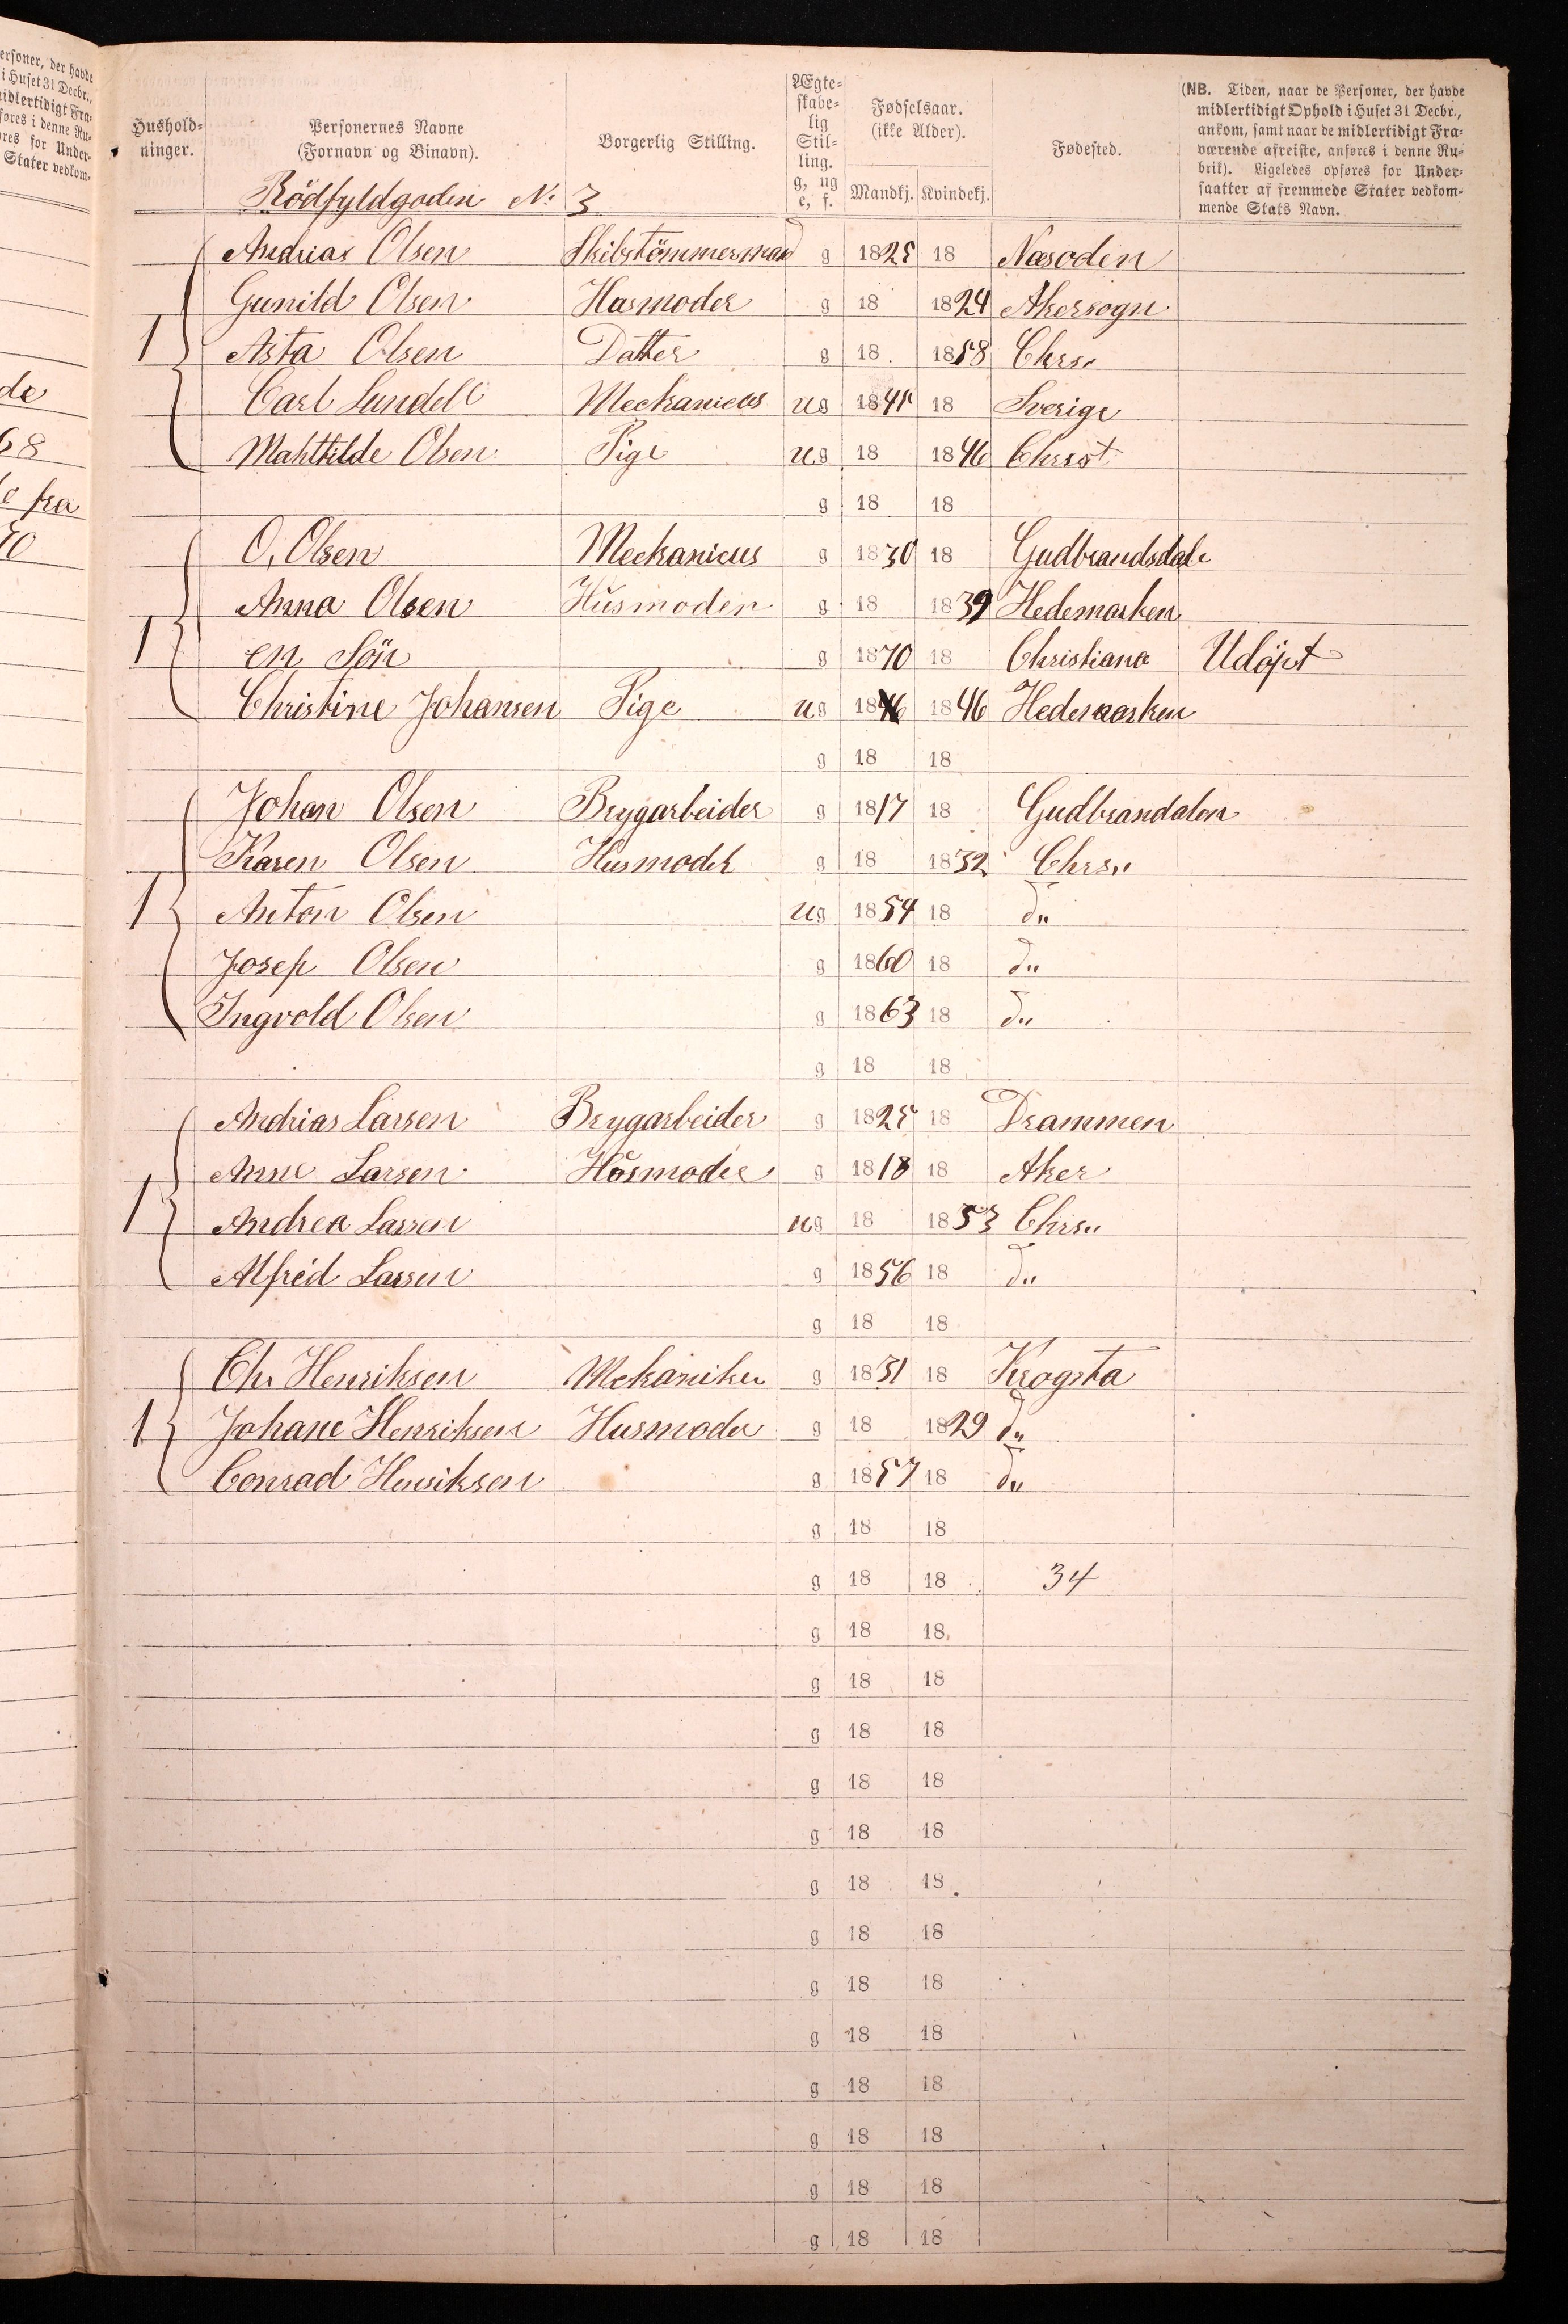 Hushold-ninger. Personernes Navne (Fornavn og Binavn). Borgerlig Stilling. Ægte-skabe-lig Stil-ling. g, ug e, f. Fødselsaar. (ikke Alder). Mandkj. Kvindekj. Fødested. (NB. Tiden, naar de Personer, der havde midlertidigt Ophold i Huset 31 Decbr., ankom, samt naar de midlertidigt Fra-værende afreiste, anføres i denne Ru-brik). Ligeledes opføres for Under-saatter af fremmede Stater vedkom-mende Stats Navn.
Rödfyldgaden No 3
Andrias Olsen Skibstömmerman g 1825 18 Næsoden
Gunild Olsen Husmoder g 18 1824 Akersogn
1 Asta Olsen Datter g 18 1858 Chrs
Carl Lundell Meckanicus ug 1845 18 Sverige
Mahthilde Olsen Pige ug 18 1846 Christ
g 18 18
O, Olsen Meckanicus g 1830 18 Gudbrandsdale
Anna Olsen Husmoder g 18 1839 Hedemarken
1 en Sön g 1870 18 Christiana Udöpt
Christine Johansen Pige ug 1846 1846 Hedemarken
g 18 18
Johan Olsen Brygarbeider g 1817 18 Gudbrandalen
Karen Olsen Husmoder g 18 1832 Chrs
1 Anton Olsen ug 1854 18 do
Josep Olsen g 1860 18 do
Ingvold Olsen g 1863 18 do
g 18 18
Andrias Larsen Brygarbeider g 1825 18 Drammen
Anne Larsen Husmoder g 1818 18 Aker
1 Andrea Larsen ug 18 1853 Chrs
Alfred Larsen g 1856 18 do
g 18 18
Chr Henriksen Mekaniker g 1831 18 Krogsta
1 Johane Henriksen Husmoder g 18 1829 do
Conrad Henriksen g 1857 18 do
g 18 18
g 18 18 34
g 18 18
g 18 18
g 18 18
g 18 18
g 18 18
g 18 18
g 18 18
g 18 18
g 18 18
g 18 18
g 18 18
g 18 18
g 18 18